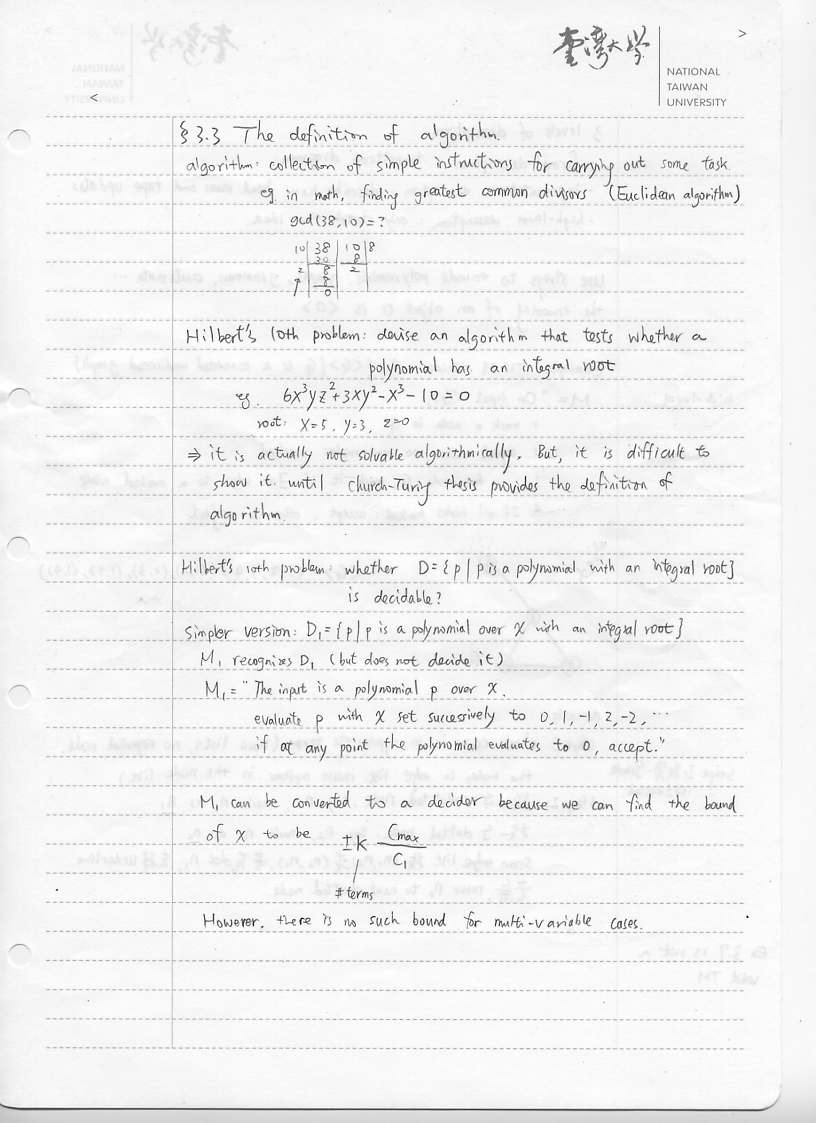 臺灣大學
>
NATIONAL
TAIWAN
UNIVERSITY
<
§ 3.3 The definition of algorithm.
algorithm: collection of simple instructions for carrying out some task
eg in math, finding greatest common divisors (Euclidean algorithm)
gcd(38,10)=?
10 | 38 | 10 | 8
30 | 8
2 | 8 | 2
↑ | 8
0
Hilbert's 10th problem: devise an algorithm that tests whether a
polynomial has an integral root
eg. 6x³yz²+3xy²-x³-10=0
root: x=5, y=3, z=0
⇒ it is actually not solvable algorithmically. But, it is difficult to
show it until Church-Turing thesis provides the definition of
algorithm.
Hilbert's 10th problem: whether D={p|p is a polynomial with an integral root}
is decidable?
Simpler version: D₁={p|p is a polynomial over x with an integral root}
M₁ recognizes D₁ (but does not decide it)
M₁="The input is a polynomial p over x.
evaluate p with x set successively to 0, 1, -1, 2, -2, ⋯
if at any point the polynomial evaluates to 0, accept."
M₁ can be converted to a decider because we can find the bound
of x to be ±k Cmax/C₁
# terms
However, there is no such bound for multi-variable cases.